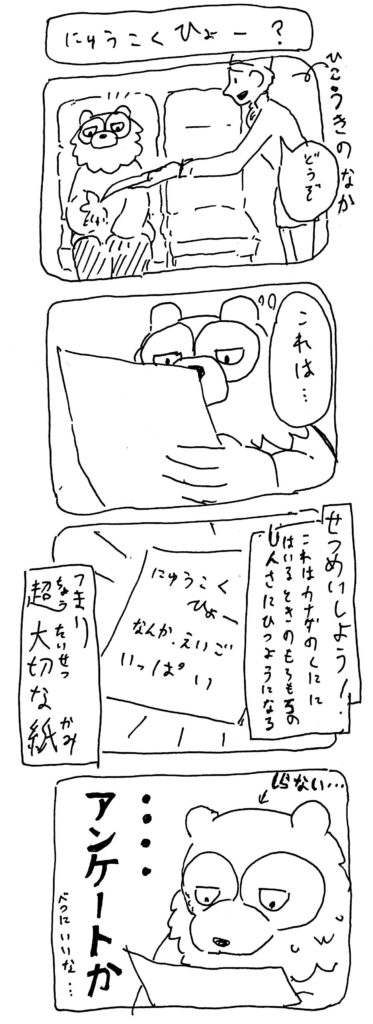 にゅうこくひょー？
ひこうきのなか
どうぞ
これは…
せつめいしよう！
これはカナダのくにに
はいるときのもろもろの
しんさにひつようになる
にゅうこく
ひょー
なんか、えいご
いっぱい
つまり
ちょう たいせつ かみ
超大切な紙
しらない…
・・・・
アンケートか
べつにいいな…